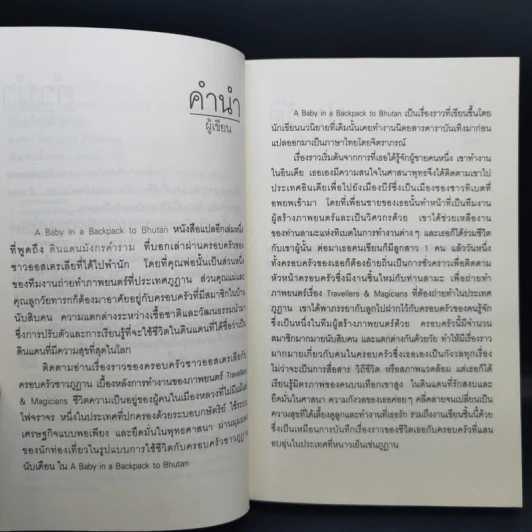 คำนำ
ผู้เขียน
A Baby in a Backpack to Bhutan หนังสือแปลอีกเล่มหนึ่ง
ที่พูดถึง ดินแดนมังกรคำราม ที่บอกเล่าผ่านครอบครัวของ
ชาวออสเตรเลียที่ได้ไปพำนัก โดยที่คุณพ่อนั้นเป็นส่วนหนึ่ง
ของทีมงานถ่ายทำภาพยนตร์ที่ประเทศภูฏาน ส่วนคุณแม่และ
คุณลูกวัยทารกก็ต้องมาอาศัยอยู่กับครอบครัวที่มีสมาชิกในบ้าน
นับสิบคน ความแตกต่างระหว่างเชื้อชาติและวัฒนธรรมนำมา
ซึ่งการปรับตัวและการเรียนรู้ที่จะใช้ชีวิตในดินแดนที่ได้ชื่อว่าเป็น
ดินแดนที่มีความสุขที่สุดในโลก
ติดตามอ่านเรื่องราวของครอบครัวชาวออสเตรเลียกับ
ครอบครัวชาวภูฏาน เบื้องหลังการทำงานของภาพยนตร์ Travellers
& Magicians ชีวิตความเป็นอยู่ของผู้คนในเมืองหลวงที่ไม่มีแม้แต่
ไฟจราจร หนึ่งในประเทศที่ปกครองด้วยระบอบกษัตริย์ ใช้ระบบ
เศรษฐกิจแบบพอเพียง และยึดมั่นในพุทธศาสนา ผ่านมุมมอง
ของนักท่องเที่ยวในรูปแบบการใช้ชีวิตกับครอบครัวชาวภูฏาน
นับเดือน ใน A Baby in a Backpack to Bhutan
A Baby in a Backpack to Bhutan เป็นเรื่องราวที่เขียนขึ้นโดย
นักเขียนนวนิยายที่เดิมนั้นเคยทำงานนิตยสารดาราบันเทิงมาก่อน
แปลออกมาเป็นภาษาไทยโดยจิตราภรณ์
เรื่องราวเริ่มต้นจากการที่เธอได้รู้จักผู้ชายคนหนึ่ง เขาทำงาน
ในอินเดีย เธอเองมีความสนใจในศาสนาพุทธจึงได้ติดตามเขาไป
ประเทศอินเดียเพื่อไปยังเมืองบีร์ซึ่งเป็นเมืองของชาวทิเบตที่
อพยพเข้ามา โดยที่เพื่อนชายของเธอนั้นทำหน้าที่เป็นทีมงาน
ผู้สร้างภาพยนตร์และเป็นวิศวกรด้วย เขาได้ช่วยเหลืองาน
ของท่านลามะแห่งทิเบตในการทำงานต่าง ๆ และเธอก็ได้ร่วมชีวิต
กับเขาผู้นั้น ต่อมาเธอคนเขียนก็มีลูกสาว 1 คน แล้ววันหนึ่ง
ทั้งครอบครัวของเธอก็ต้องย้ายถิ่นเป็นการชั่วคราวเพื่อติดตาม
หัวหน้าครอบครัวซึ่งมีงานชิ้นใหม่กับท่านลามะ เพื่อถ่ายทำ
ภาพยนตร์เรื่อง Travellers & Magicians ที่ต้องถ่ายทำในประเทศ
ภูฏาน เขาได้พาภรรยากับลูกไปฝากไว้กับครอบครัวของคนรู้จัก
ซึ่งเป็นหนึ่งในทีมผู้สร้างภาพยนตร์ด้วย ครอบครัวนี้มีจำนวน
สมาชิกมากมายนับสิบคน และแตกต่างกันด้วยวัย ทำให้มีเรื่องราว
มากมายเกี่ยวกับคนในครอบครัวซึ่งเธอเองเป็นกังวลทุกเรื่อง
ไม่ว่าจะเป็นการสื่อสาร วิถีชีวิต หรือสภาพแวดล้อม แต่เธอก็ได้
เรียนรู้มิตรภาพของคนบนเทือกเขาสูง ในดินแดนที่รักสงบและ
ยึดมั่นในศาสนา ความกังวลของเธอค่อย ๆ คลี่คลายจนเปลี่ยนเป็น
ความสุขที่ได้เลี้ยงดูลูกและทำงานที่เธอรัก รวมถึงงานเขียนชิ้นนี้ด้วย
ซึ่งเป็นเหมือนการบันทึกเรื่องราวของชีวิตเธอกับครอบครัวที่แสน
อบอุ่นในประเทศที่หนาวเย็นเช่นภูฏาน